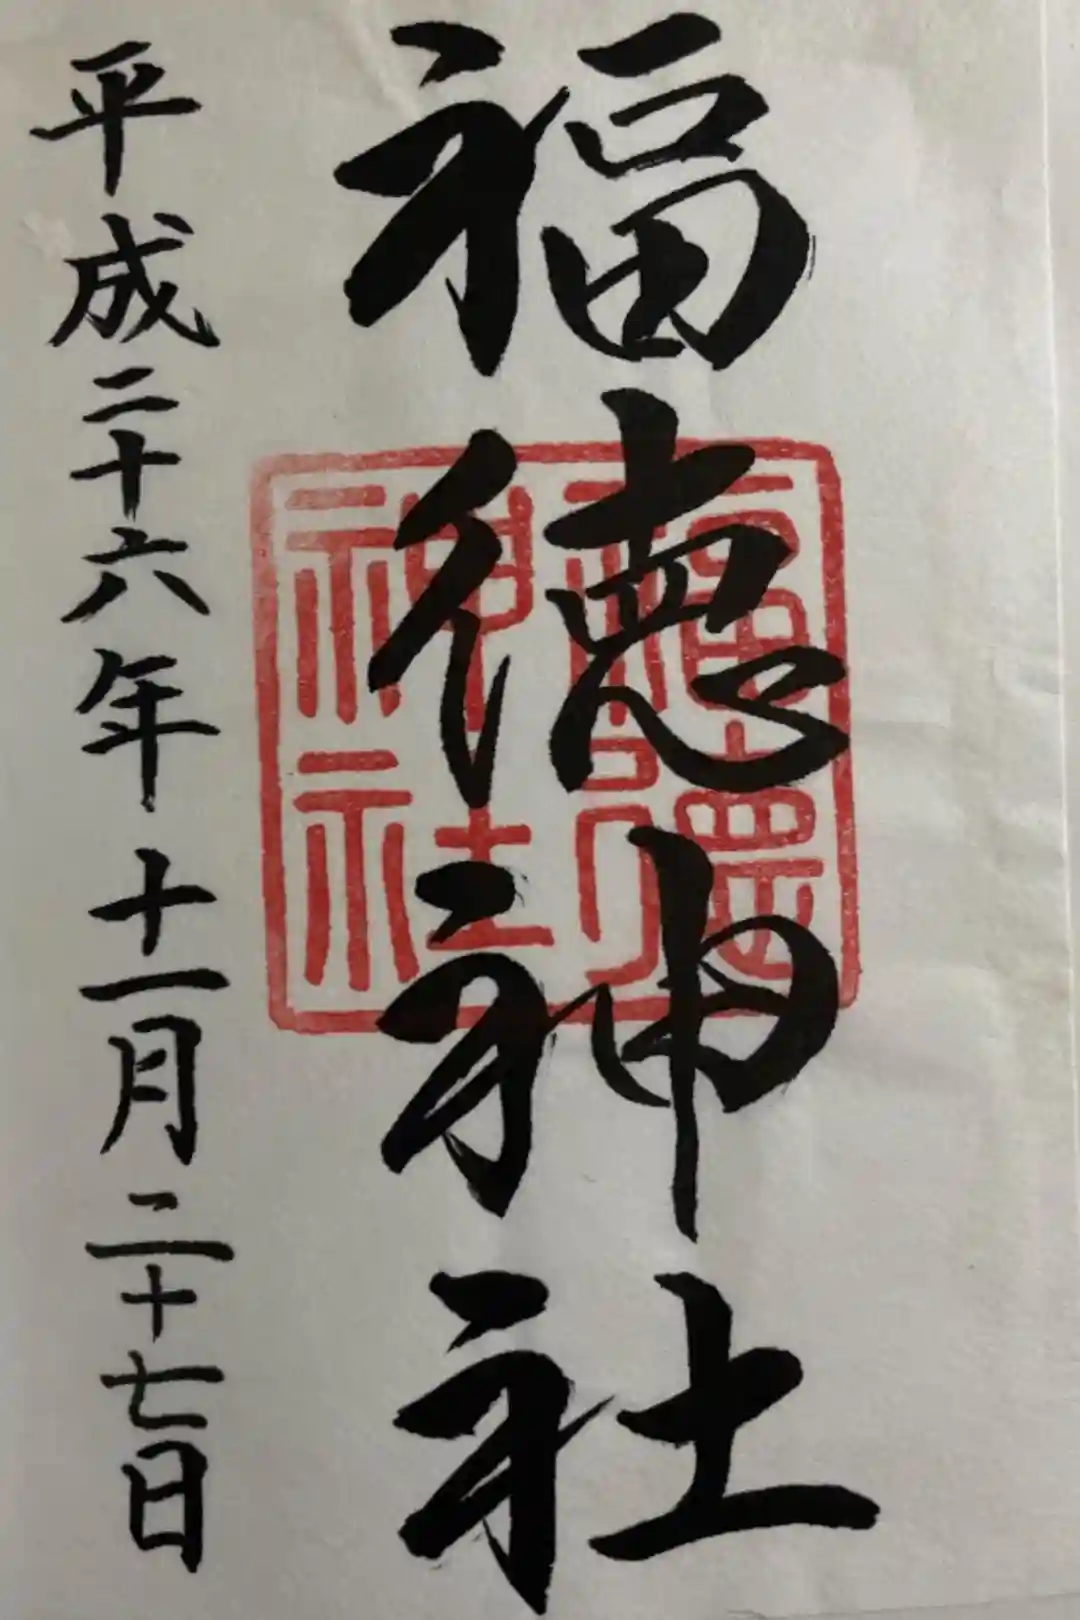 福徳神社
福徳
神社
平成二十六年十一月二十七日